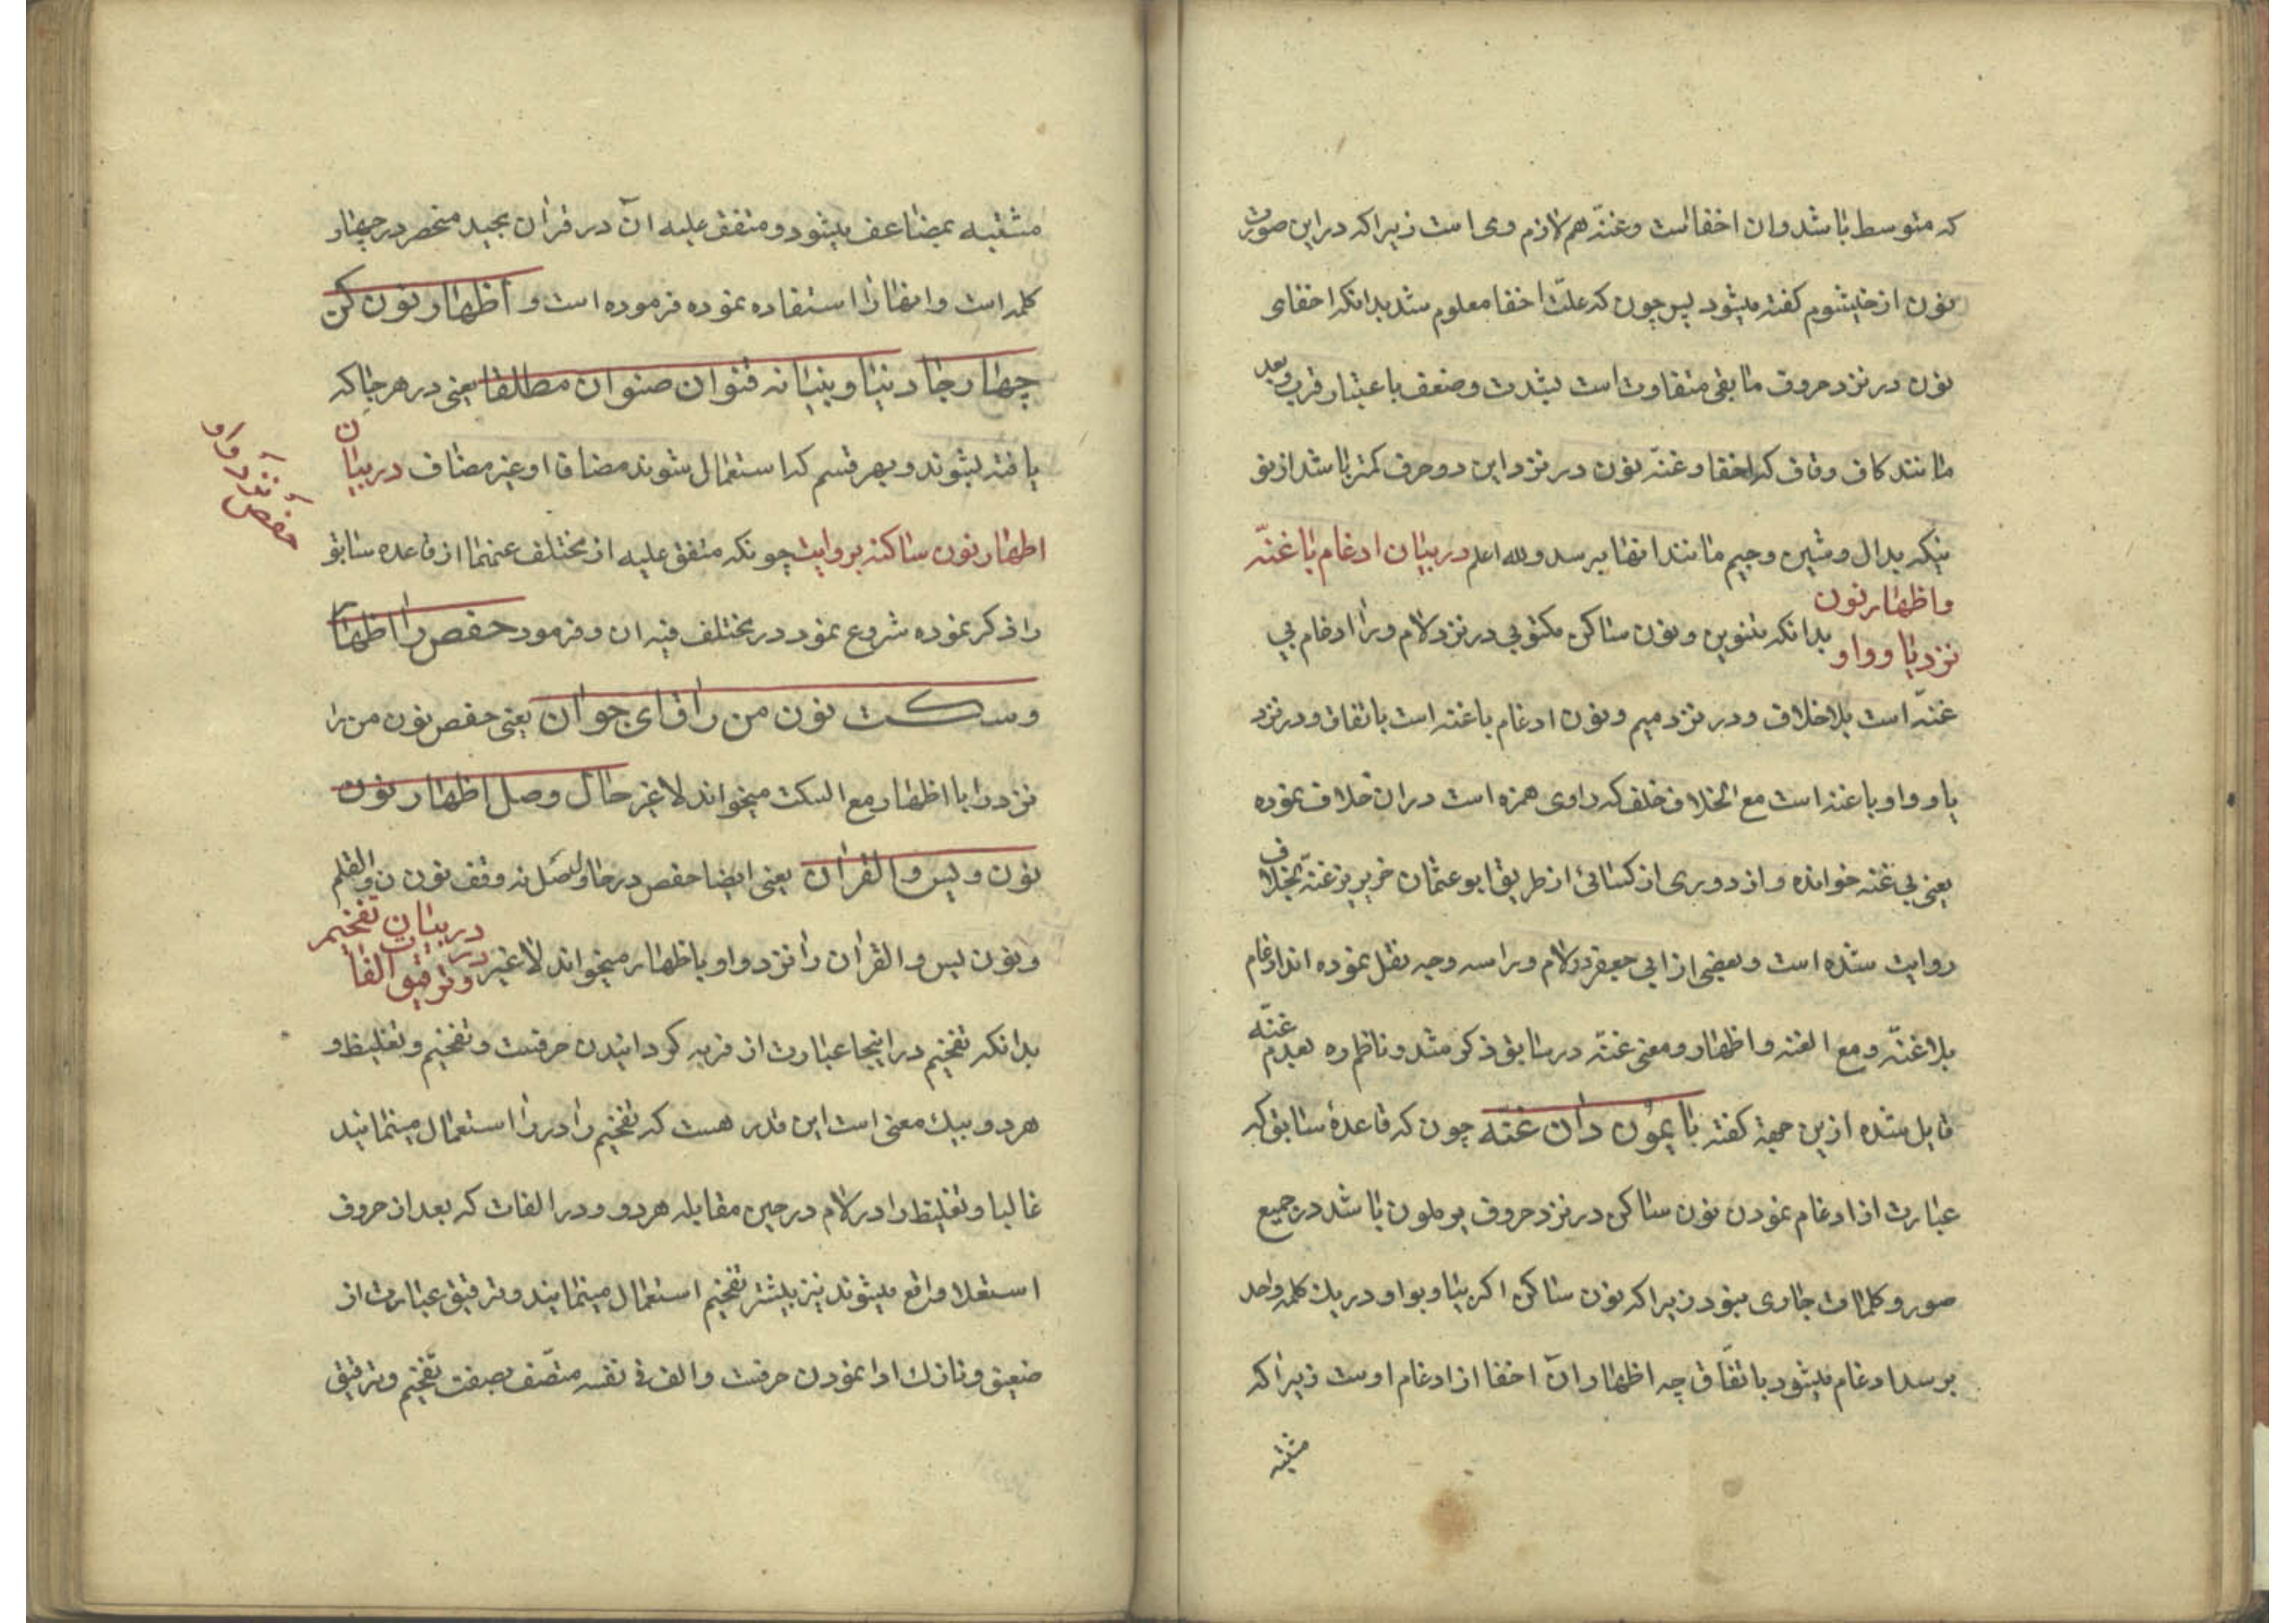 که متوسط باشد وان اخفاست وغنّه هم لازم وی است زیرا که دراین صورت
نون از خیشوم کفته میشود پس چون که علّت اخفا معلوم شد بدانکه اخفای
نون در نزد حروف مابقی متفاوت است بشدت وضعف باعتبار قرب وبعد
مانند کاف وقاف که اخفا وغنّه نون در نزد این دو حرف کمتر باشد از نو
نیکه بدال وشین وجیم مانند انها برسد والله اعلم در بیان ادغام باغنّه
واظهار نون
نزد یا وواو بدانکه تنوین ونون ساکن مکتوبی در نزد لام ورا ادغام بی
غنّه است بلاخلاف ودر نزد میم ونون ادغام باغنه است باتفاق ودر نزد
یا وواو باغنه است مع الخلاف خلف که راوی همزه است دران خلاف نموده
یعنی بی غنه خوانده واز دوری از کسائی از طریق ابوعثمان ضریر نیز غنّه بخلاف
روایت شده است وبعضی از ابی جعفر در لام ورا سه وجه نقل نموده اند ادغام
بلاغنّه ومع الغنه واظهار ومعنی غنّه در سابق ذکر شد وناظم ره بعدم غنّه
قایل شده ازین جهة کفته بایمون دان غنّه چون که قاعدۀ سابق که
عبارت از ادغام نمودن نون ساکن در نزد حروف یرملون باشد در جمیع
صور وکلمات جاری نبود زیرا که نون ساکن اکر بیا وبواو در یك کلمه واحد
برسد ادغام نمیشود باتفّاق چه اظهار ان اخفا از ادغام اوست زیرا که
مشتبه
مشتبه بمضاعف میشود ومتفق علیه ان در قران مجید منحصر در چهار
کلمه است وانها را استفاده نموده فرموده است و اظهار نون کن
چهار جا دنیا وبنیانه قنوان صنوان مطلقا یعنی در هر جا که
یافته بشوند وبهر قسم که استعمال شوند مضاف او غیر مضاف در بیان
اظهار نون ساکنه بروایت چونکه متفق علیه از مختلف عنهما از قاعده سابق
حفص نزد واو
را ذکر نموده شروع نمود در مختلف فیه ان وفرمود حفص را اظهار
وسکت نون من راق ای جوان یعنی حفص نون من را
نزد را با اظهار مع السکت میخواند لاغیر حال وصل اظهار نون
نون ویس والقران یعنی ایضا حفص در حال وصل نه وقف نون ن والقلم
ونون یس والقران را نزد واو باظهار میخواند لاغیر در بیان تفخیم
وترقیق الفات
بدانکه تفخیم در اینجا عبارت از فربه کردانیدن حرفست وتفخیم وتغلیظ و
هر دو بیك معنی است این قدر هست که تفخیم را در را استعمال مینمایند
غالبا وتغلیظ را در لام در حین مقابله هر دو ودر الفات که بعد از حروف
استعلا واقع میشوند نیز بیشتر تفخیم استعمال مینمایند وترقیق عبارت از
ضعیف ونازك ادا نمودن حرفست والف فی نفسه متصّف بصفت تفخیم وترقیق